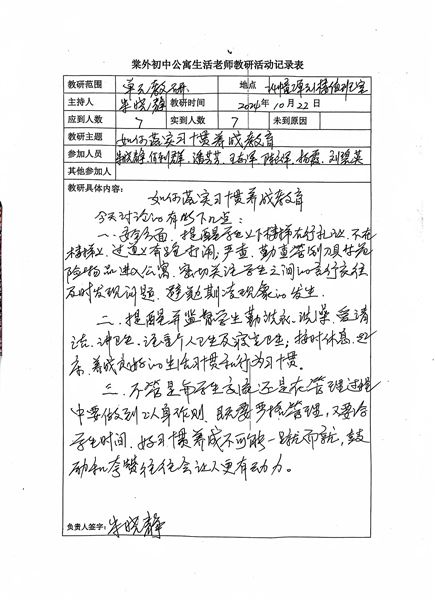 棠外初中公寓生活老师教研活动记录表
教研范围 单元教研 地点 值班室
主持人 朱晓静 教研时间 2024年10月22日
应到人数 7 实到人数 7 未到原因
教研主题 如何落实习惯养成教育
参加人员 朱晓静
其他参加人
教研具体内容:
如何落实习惯养成教育
今天讨论的有以下几点:
一、安全方面,提醒学生上下楼梯右行礼让,不在
楼梯上、过道上追逐打闹,严查、勤查管制刀具等危
险物品进入公寓,密切关注学生之间的言行交往
及时发现问题,避免欺凌现象的发生。
二、提醒并监督学生勤换衣、洗澡,爱清
洁、讲卫生,注重个人卫生及寝室卫生;按时休息、起
床,养成良好的生活习惯和行为习惯。
三、不管是和学生交流还是在管理过程
中要做到以身作则,既要严格管理,又要给
学生时间,好习惯养成不可能一蹴而就,鼓
励和夸赞往往会让人更有动力。
负责人签字: 朱晓静